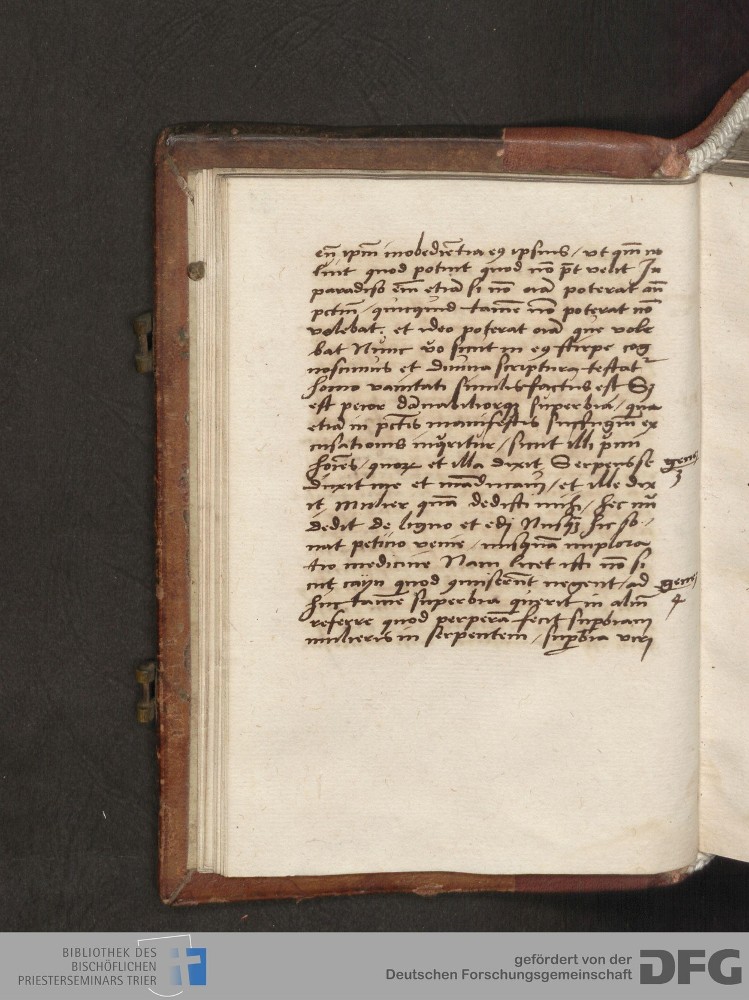 eū ipm̄ inobediētia eꝰ ipsius / ut qm̄ no
luit quod potuit quod nō pt̄ velit In
paradiso em̄ etiā si nō oīa poterat an̄
pctm̄ / quicquid tamē nō poterat nō
volebat. et ideo poterat oīa que vole
bat Nunc vo sicut in eꝰ stirpe cog
noscimus et diuina scriptura testat
homo vanitati similis factus est Sꝫ
est peior dānabiliorqꝫ superbia / qua
etiā in pctis manifestis suffugiū ex
cusationis inqritur / sicut illi pimi
hoīes / quoꝝ et illa dixit Serpens se
duxit me et māducaui / et ille dix
it Mulier quā dedisti michi / hec m̄
dedit de ligno et edi Nusqꝫ hic so
nat peticio venie / nusquā implora
tio medicine Nam licet isti nō si
cut cayn quod comiserūt negent / ad
huc tamē superbia querit in aliū
referre quod perperā fecit superbiam
mulieris in serpentem / supbia viri
genes
3
genes
4
BIBLIOTHEK DES
BISCHÖFLICHEN
PRIESTERSEMINARS TRIER
gefördert von der
Deutschen Forschungsgemeinschaft
DFG